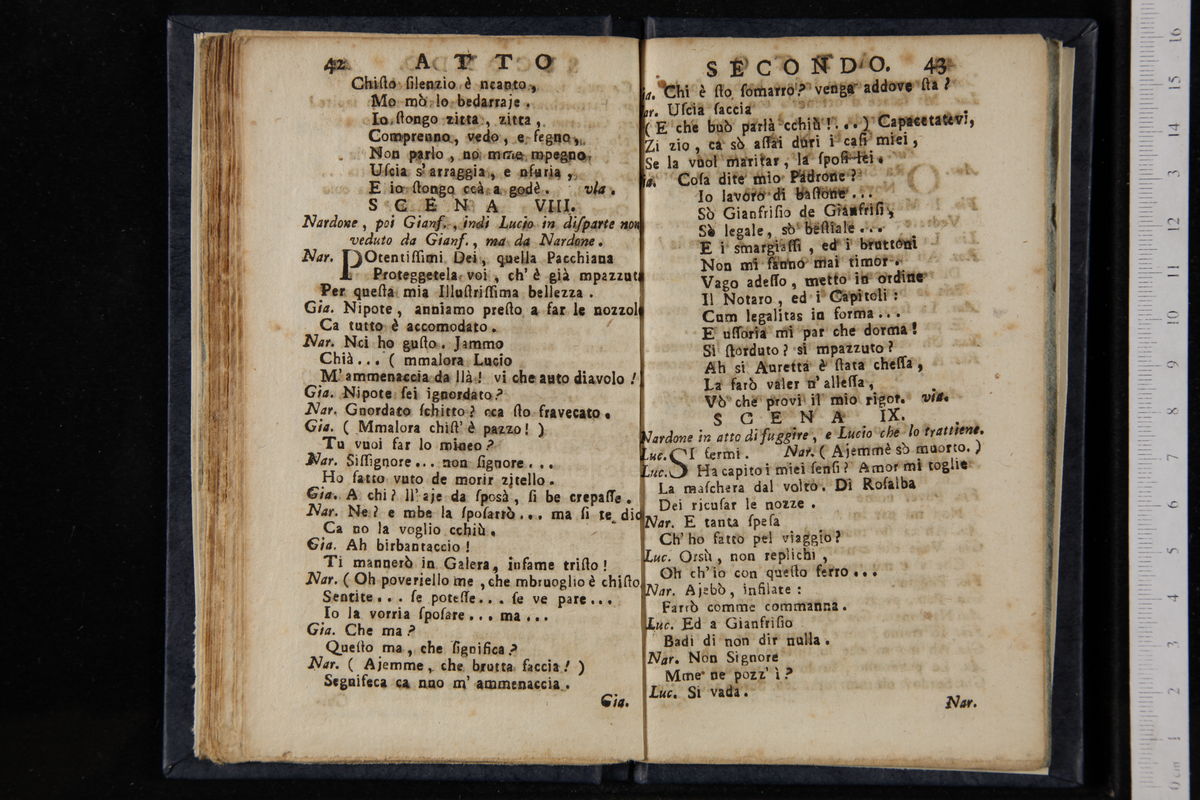 42 ATTO
Chiſto ſilenzio è ncanto,
Mo mò lo bedarraje.
Io ſtongo zitta, zitta,
Comprenno, vedo, e fegno,
Non parlo, no mme mpegno
Uſcia s'arraggia, e nfuria,
E io ſtongo ccà a godè. via.
SCENA VIII.
Nardone, poi Gianf., indi Lucio in diſparte non
veduto da Gianf., ma da Nardone.
Nar. POtentiſſimi Dei, quella Pacchiana
Proteggetela voi, ch'è già mpazzuta
Per queſta mia Illuſtriſſima bellezza.
Gia. Nipote, anniamo preſto a far le nozzole
Ca tutto è accomodato.
Nar. Nci ho guſto. Jammo
Chià... ( mmalora Lucio
M'ammenaccia da llà! vi che auto diavolo!
Gia. Nipote ſei ignordato?
Nar. Gnordato ſchitto? cca ſto fravecato.
Gia. ( Mmalora chiſt' è pazzo! )
Tu vuoi far lo mineo?
Nar. Siſſignore... non ſignore...
Ho fatto vuto de morir zitello.
Gia. A chi? ll'aje da ſposà, ſi be crepaſſe.
Nar. Ne? e mbe la ſpoſarrò... ma ſi te dic
Ca no la voglio cchiù.
Gia. Ah birbantaccio!
Ti mannerò in Galera, infame triſto!
Nar. ( Oh poveriello me, che mbruoglio è chiſto
Sentite... ſe poteſſe... ſe ve pare...
Io la vorria ſpoſare... ma...
Gia. Che ma?
Queſto ma, che ſignifica?
Nar. ( Ajemme, che brutta faccia! )
Segnifeca ca nno m'ammenaccia.
Gia.
SECONDO. 43
ia. Chi è ſto ſomarro? venga addove ſta?
ar. Uſcia faccia
( E che buò parlà cchiù!...) Capacetatevi,
Zi zio, ca sò aſſai duri i caſi miei,
Se la vuol maritar, la ſpoſi lei.
ia. Coſa dite mio Padrone?
Io lavoro di baſtone...
Sò Gianfriſio de Gianfriſi,
Sò legale, sò beſtiale...
E i smargiaſſi, ed i bruttoni
Non mi fanno mai timor.
Vago adeſſo, metto in ordine
Il Notaro, ed i Capitoli:
Cum legalitas in forma...
E uſſoria mi par che dorma!
Si ſtorduto? si mpazzuto?
Ah si Auretta è ſtata cheſſa,
La farò valer n'alleſſa,
Vò che provi il mio rigor. via.
SCENA IX.
Nardone in atto di fuggire, e Lucio che lo trattiene.
Luc. SI fermi. Nar. ( Ajemmè sò muorto. )
Luc. Ha capito i miei ſenſi? Amor mi toglie
La maſchera dal volto. Di Roſalba
Dei ricuſar le nozze.
Nar. E tanta ſpeſa
Ch'ho fatto pel viaggio?
Luc. Orsù, non replichi,
Oh ch'io con queſto ferro...
Nar. Ajebò, infilate:
Farrò comme commanna.
Luc. Ed a Gianfriſio
Badi di non dir nulla.
Nar. Non Signore
Mme ne pozz' ì?
Luc. Si vada.
Nar.